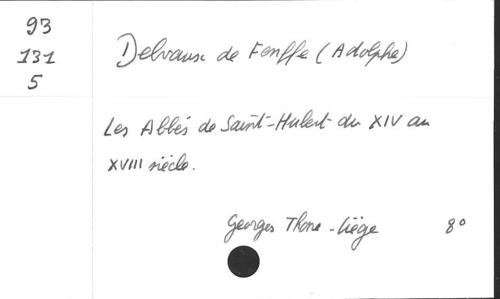 93
131
5
Delvaux de Fenffe (Adolphe)
Les Abbés de Saint-Hubert du XIV au
XVIII siècle.
Georges Thone - Liège 8°